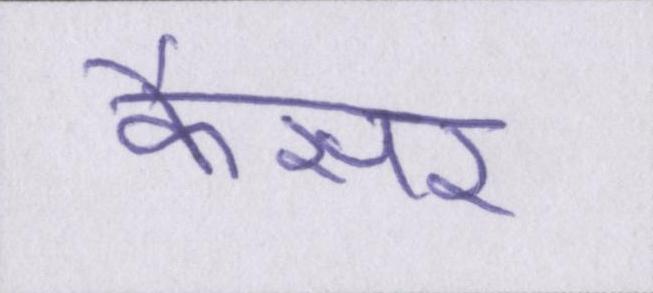 कैसर